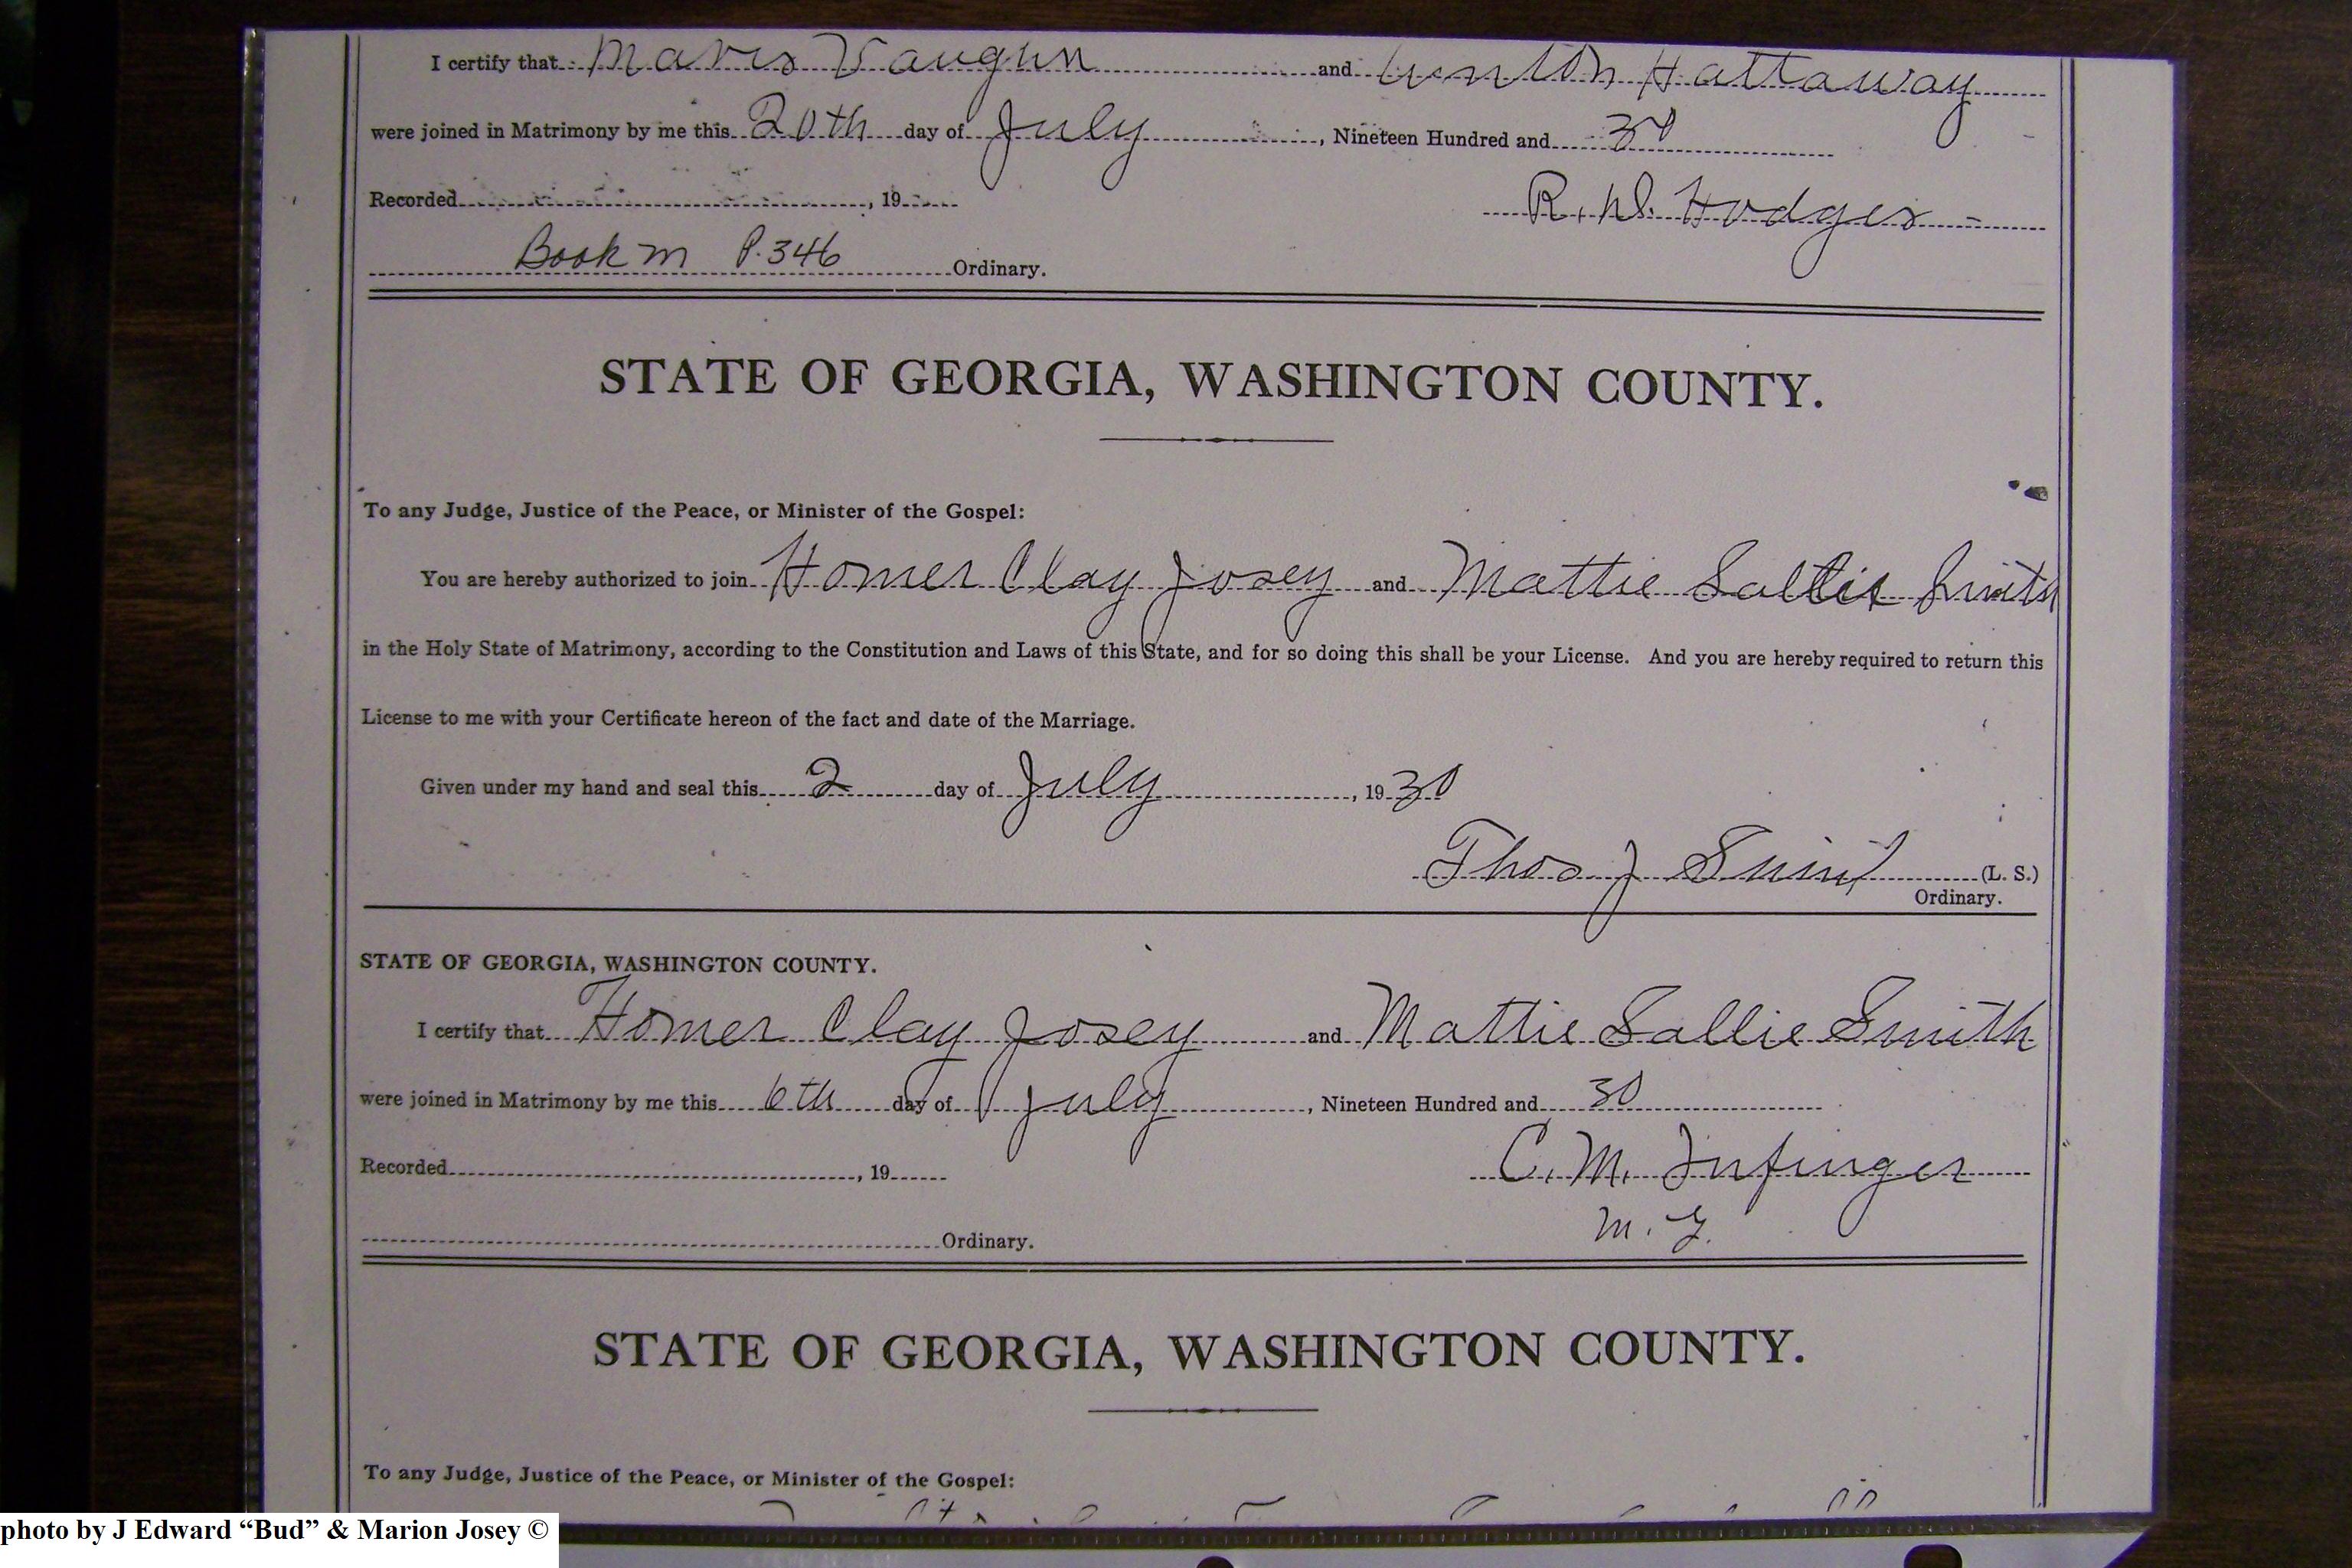 I certify that Mavis Vaughn and Hattaway
were joined in Matrimony by me this 20th day of July, Nineteen Hundred and 30
Recorded, 19
R. W. Hodges
Book M P. 346 Ordinary.
STATE OF GEORGIA, WASHINGTON COUNTY.
To any Judge, Justice of the Peace, or Minister of the Gospel:
You are hereby authorized to join Homer Clay Josey and Mattie Sallie Smith
in the Holy State of Matrimony, according to the Constitution and Laws of this State, and for so doing this shall be your License. And you are hereby required to return this
License to me with your Certificate hereon of the fact and date of the Marriage.
Given under my hand and seal this 2 day of July, 1930
Thos J (L. S.)
Ordinary.
STATE OF GEORGIA, WASHINGTON COUNTY.
I certify that Homer Clay Josey and Mattie Sallie Smith
were joined in Matrimony by me this 6th day of July, Nineteen Hundred and 30
Recorded, 19
C. M. Infinger
M. G.
Ordinary.
STATE OF GEORGIA, WASHINGTON COUNTY.
To any Judge, Justice of the Peace, or Minister of the Gospel:
photo by J Edward “Bud” & Marion Josey ©